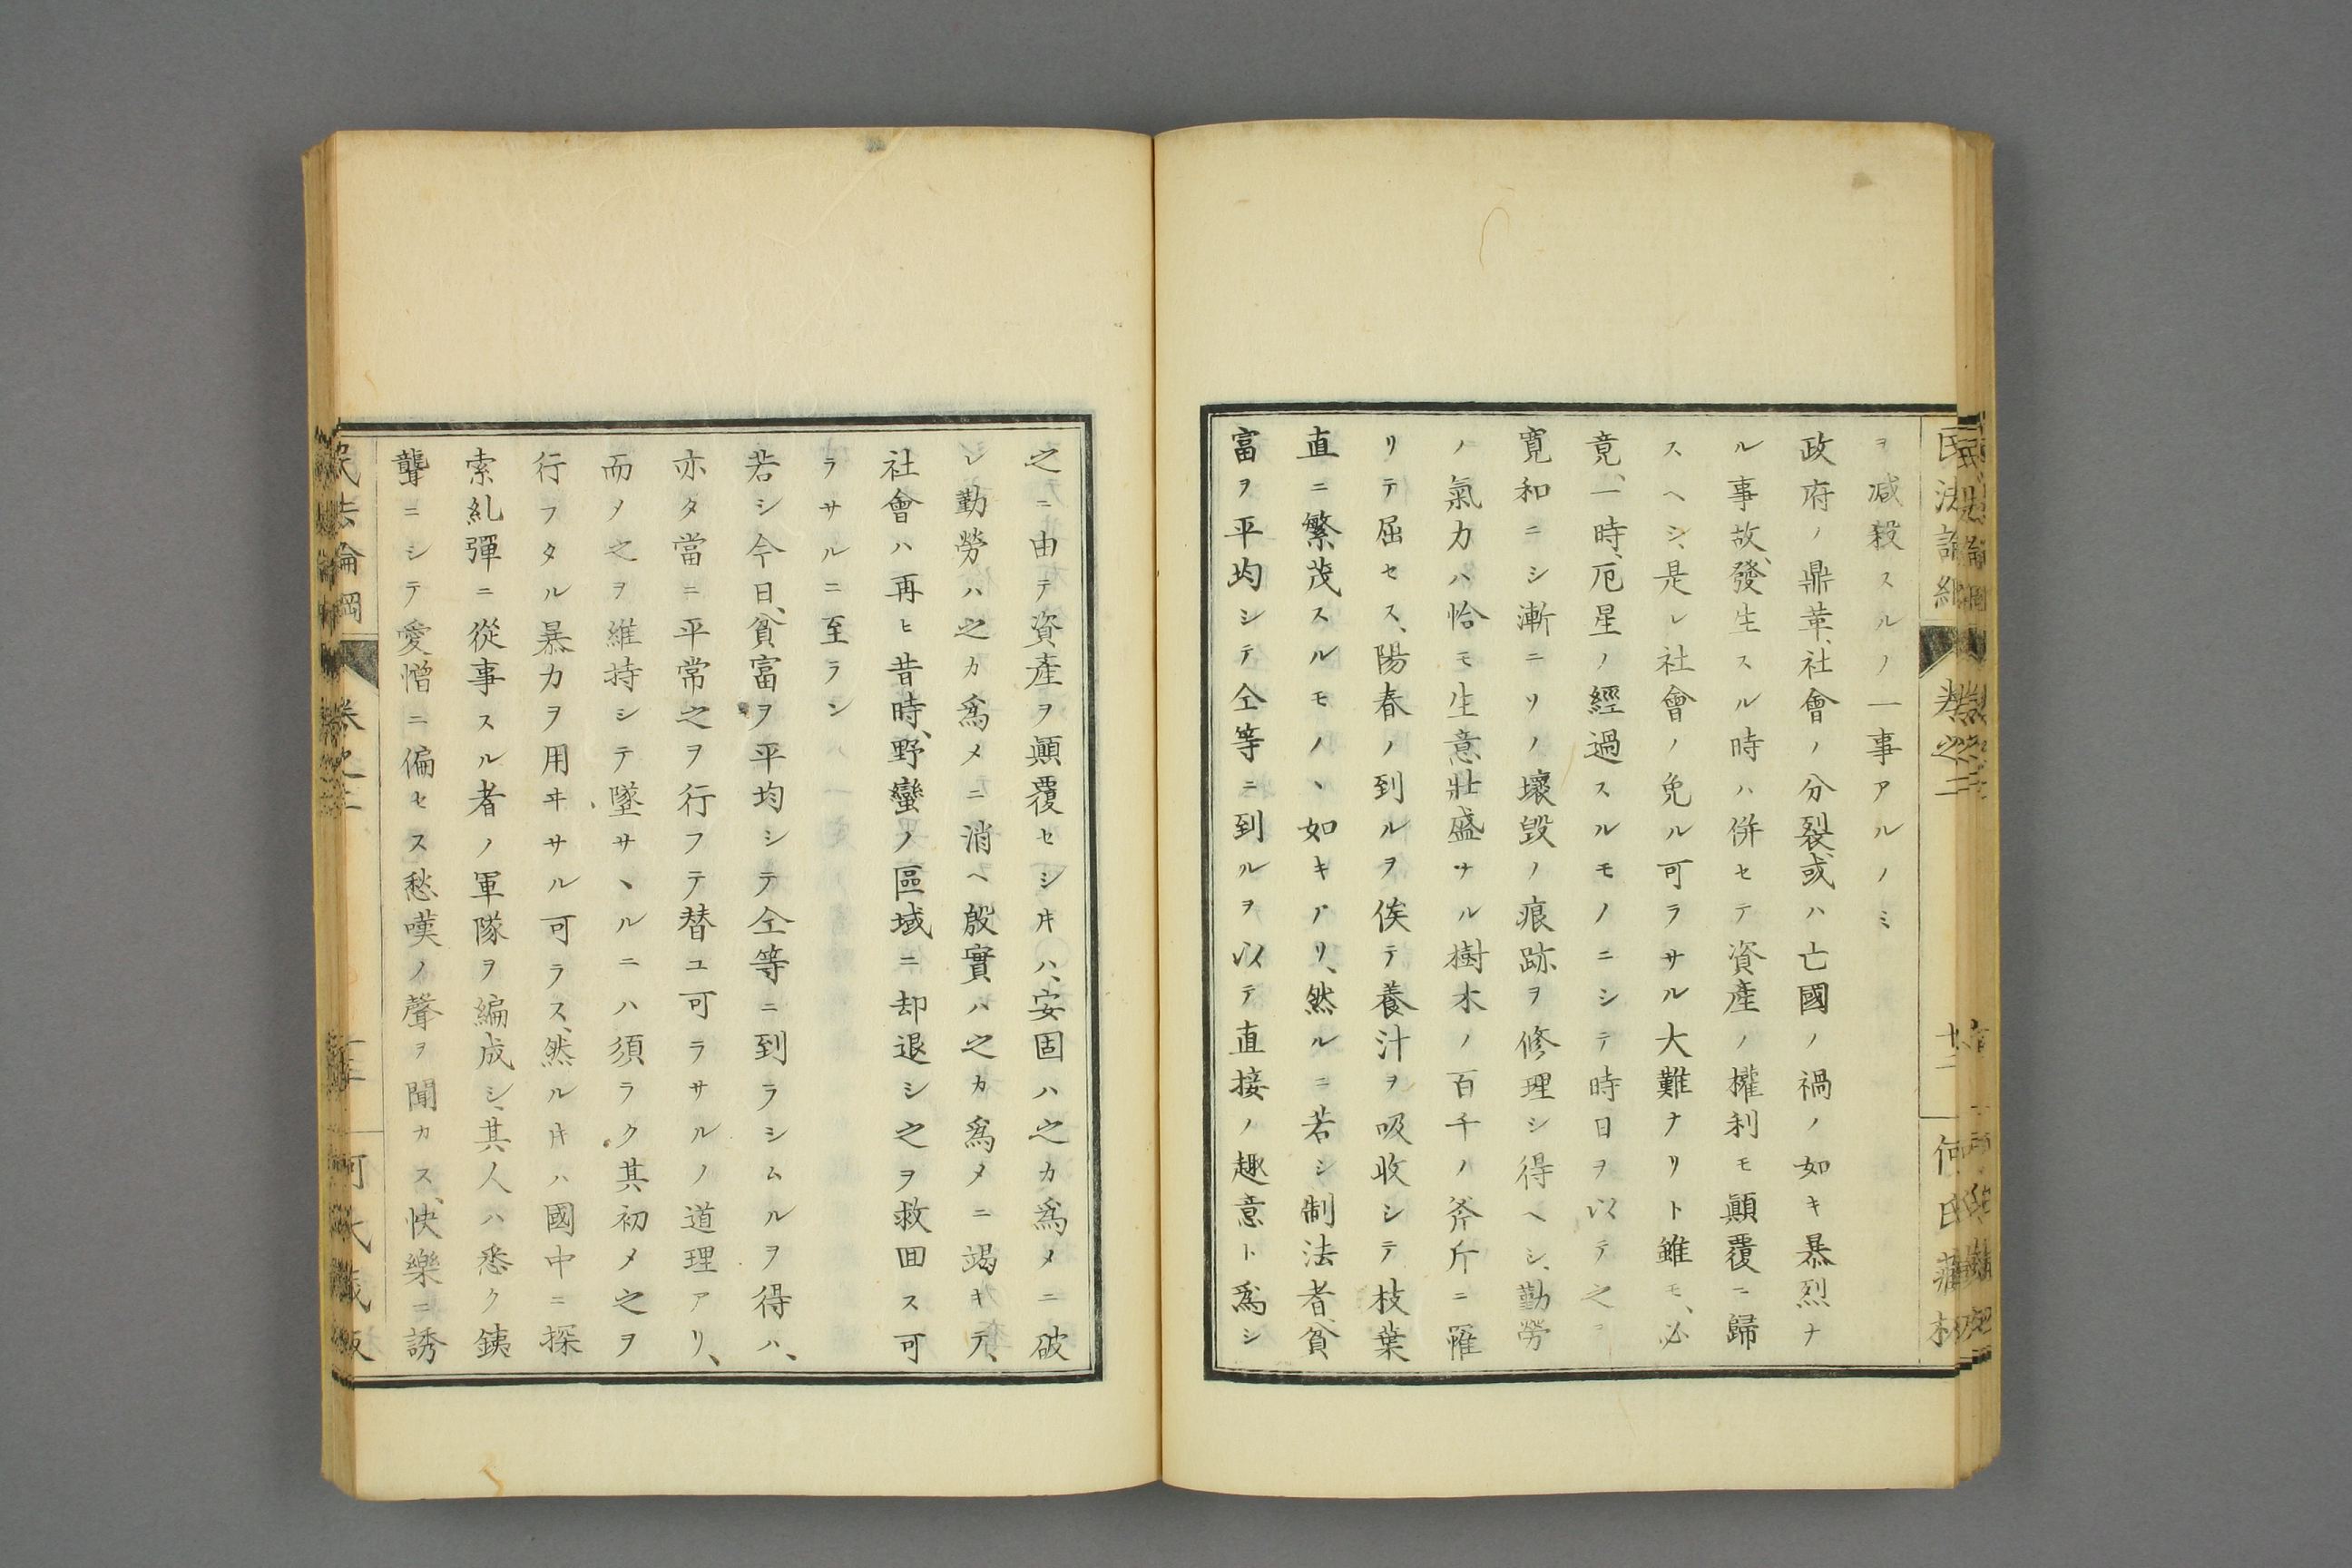 ヲ减殺スルノ一事アルノミ
政府ノ鼎革、社會ノ分裂、或ハ亡國ノ禍ノ如キ暴烈ナ
ル事故、發生スル時ハ併セテ資產ノ權利モ顚覆ニ歸
スヘシ、是レ社會ノ免ル可ラサル大難ナリト雖モ、必
竟、一時、厄星ノ經過スルモノニシテ時日ヲ以テ之ヲ
寛和ニシ漸ニソノ壞毀ノ痕跡ヲ修理シ得ヘシ、勤勞
ノ氣力ハ恰モ生意壯盛ナル樹木ノ百千ノ斧斤ニ罹
リテ屈セス、陽春ノ到ルヲ俟テ養汁ヲ吸收シテ枝葉
直ニ繁茂スルモノヽ如キアリ、然ルニ若シ制法者、貧
富ヲ平均シテ仝等ニ到ルヲ以テ直接ノ趣意ト爲シ
民法論綱 卷之二 廿二 何氏藏板
之ニ由テ資產ヲ顚覆セシ𪜈ハ、安固ハ之カ爲メニ破
レ勤勞ハ之カ爲メニ消ヘ殷實ハ之カ爲メニ竭キテ、
社會ハ再ヒ昔時、野蠻ノ區域ニ却退シ之ヲ救囬ス可
ラサルニ至ラン
若シ今日、貧富ヲ平均シテ仝等ニ到ラシムルヲ得ハ、
亦タ當ニ平常之ヲ行フテ替ユ可ラサルノ道理アリ、
而ノ之ヲ維持シテ墜サヽルニハ須ラク其初メ之ヲ
行フタル暴力ヲ用ヰサル可ラス、然ル𪜈ハ國中ニ探
索糺彈ニ從事スル者ノ軍隊ヲ編成シ、其人ハ悉ク銕
聾ニシテ愛憎ニ偏セス愁嘆ノ聲ヲ聞カス、快樂ニ誘
民法論綱 卷之二 何氏藏版